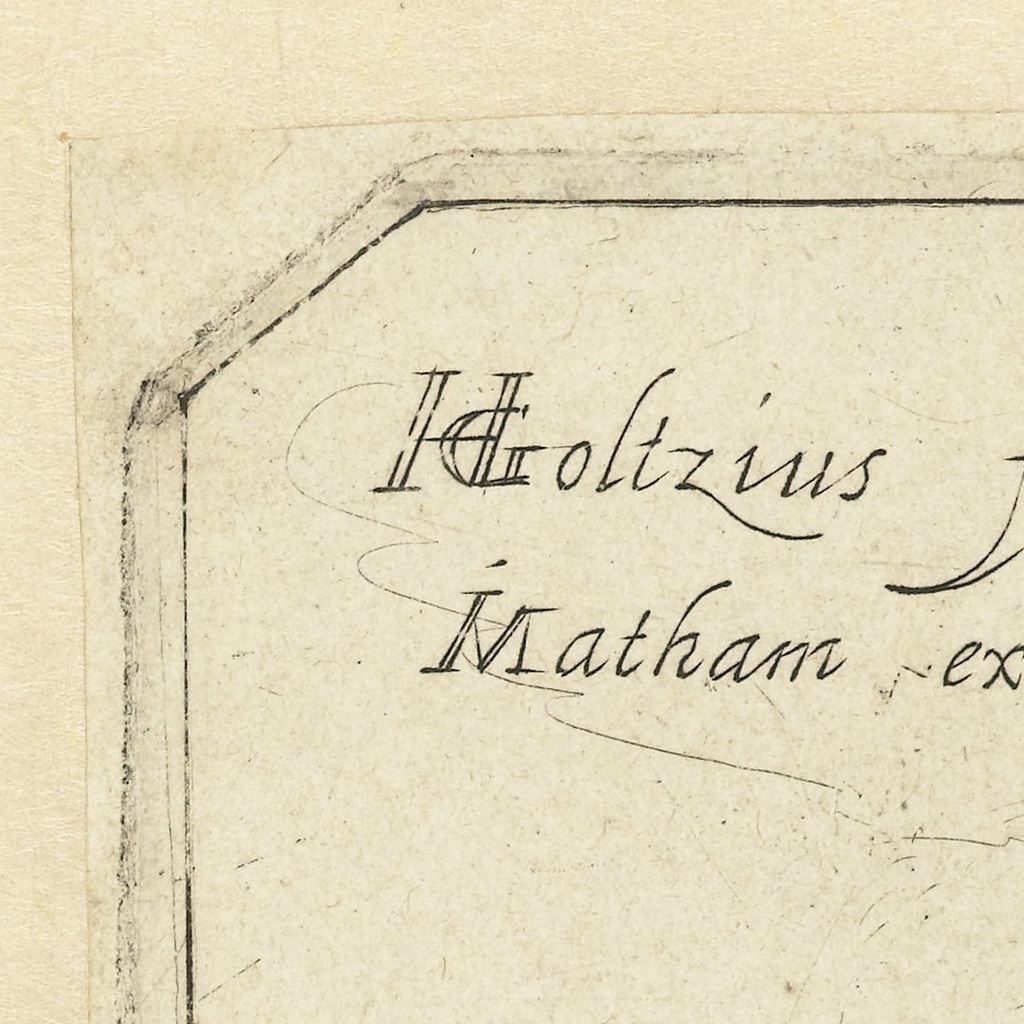 HGoltzius
Matham ex